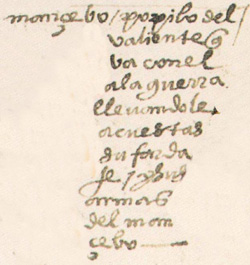 mançebo / popilo del
valiente q̃
va con el
a la guerra
llevandole
acuestas
su farda
armas
del man
çebo